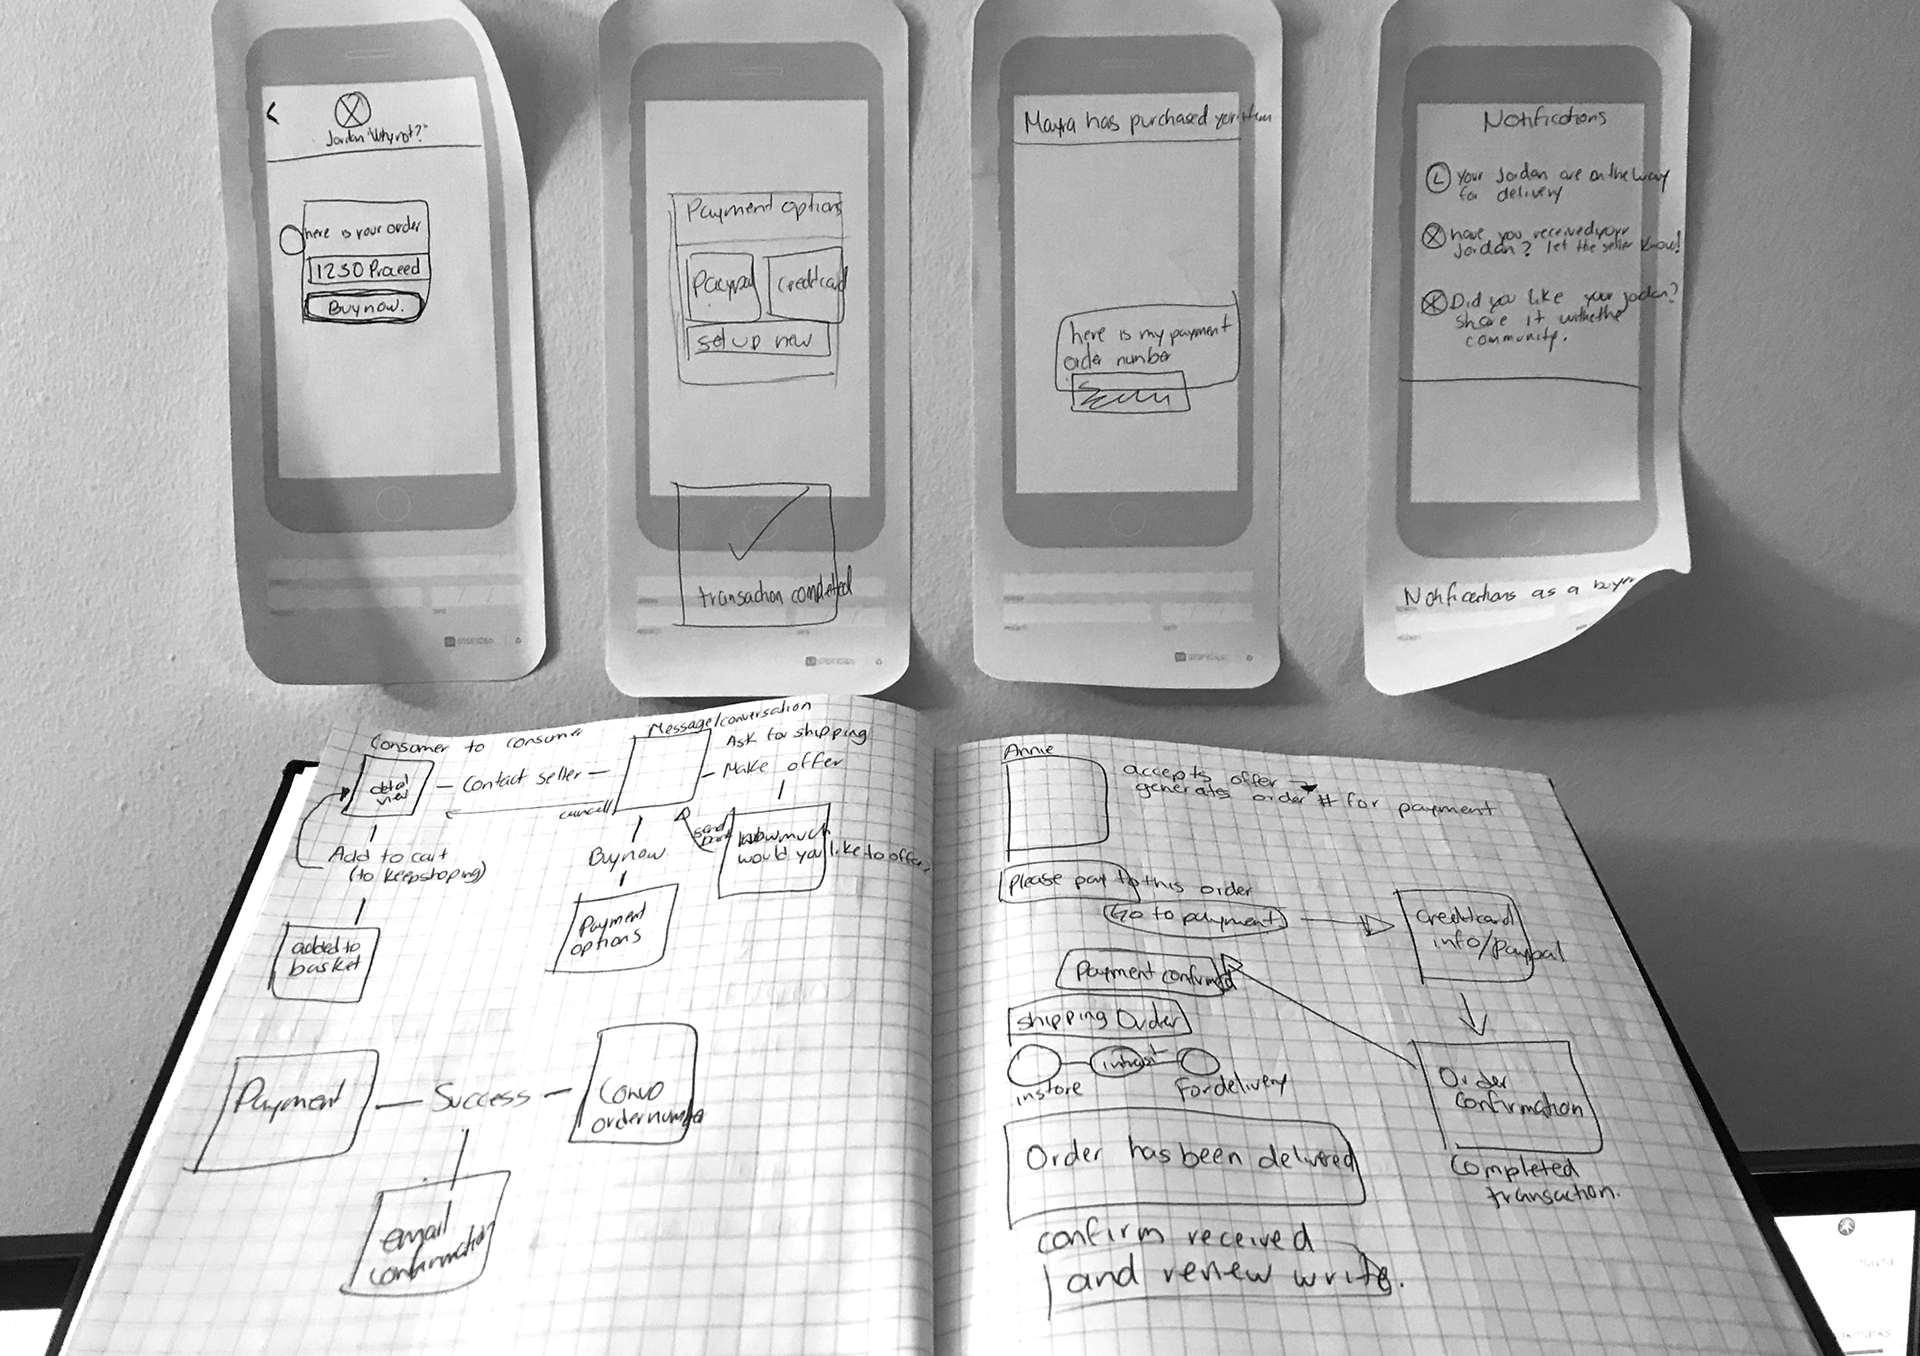 Jordan "Why not?"
here is your order
1230 Proceed
Buy now.
Payment options
Paypal
Credit card
set up new
transaction completed
Mayra has purchased your item
here is my payment
order number
Notifications
L Your Jordan are on the way
for delivery
have you received your
Jordan? let the seller know!
Did you like your jordan?
share it with the
community.
Notifications as a buyer
Consomer to consumer
Message/conversation
detail
view
Contact seller
cancel
Ask for shipping
Make offer
Add to cart
(to keep shoping)
Buy now
send
how much
would you like to offer?
added to
basket
Payment
options
Payment
Success
Convo
order number
email
confirmation
Annie
accepts offer
generates order # for payment
Please pay to this order
Go to payment
Credit card
info/Paypal
Payment confirmed
Shipping Order
instore
For delivery
Order
Confirmation
Completed
transaction.
Order has been delivered
confirm received
and renew write.